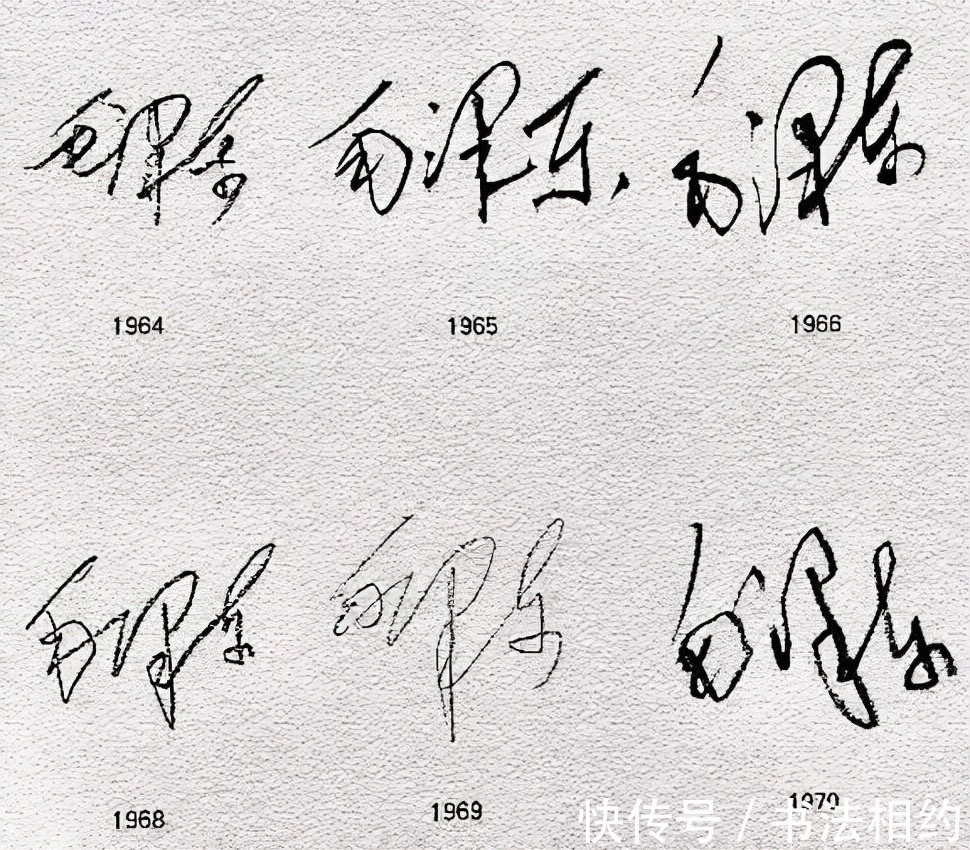 毛泽东 毛泽东 毛泽东
1964 1965 1966
毛泽东 毛泽东 毛泽东
1968 1969 1970
快传号 / 书法相约